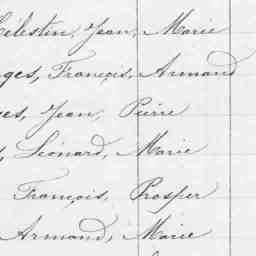 Célestin, Jean, Marie
François, Armand
Jean, Pierre
Léonard, Marie
François, Prosper
Armand, Marie